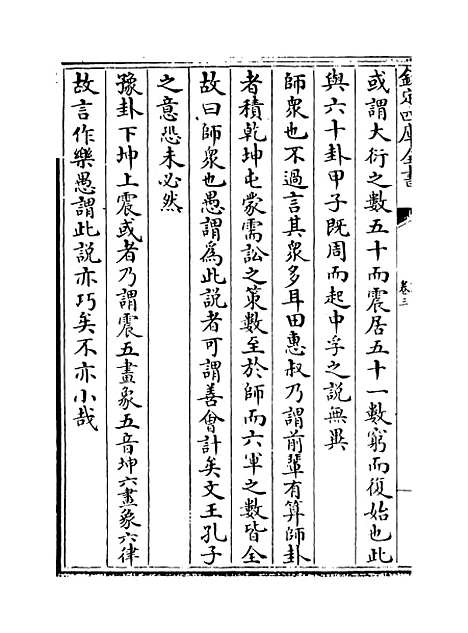 欽定四庫全書
卷三
或謂大衍之數五十而震居五十一數窮而復始也此
與六十卦甲子既周而起中孚之說無異
師衆也不過言其衆多耳田惠叔乃謂前輩有算師卦
者積乾坤屯蒙需訟之策數至於師而六軍之數皆全
故曰師衆也愚謂為此說者可謂善會計矣文王孔子
之意恐未必然
豫卦下坤上震或者乃謂震五畫象五音坤六畫象六律
故言作樂愚謂此說亦巧矣不亦小哉